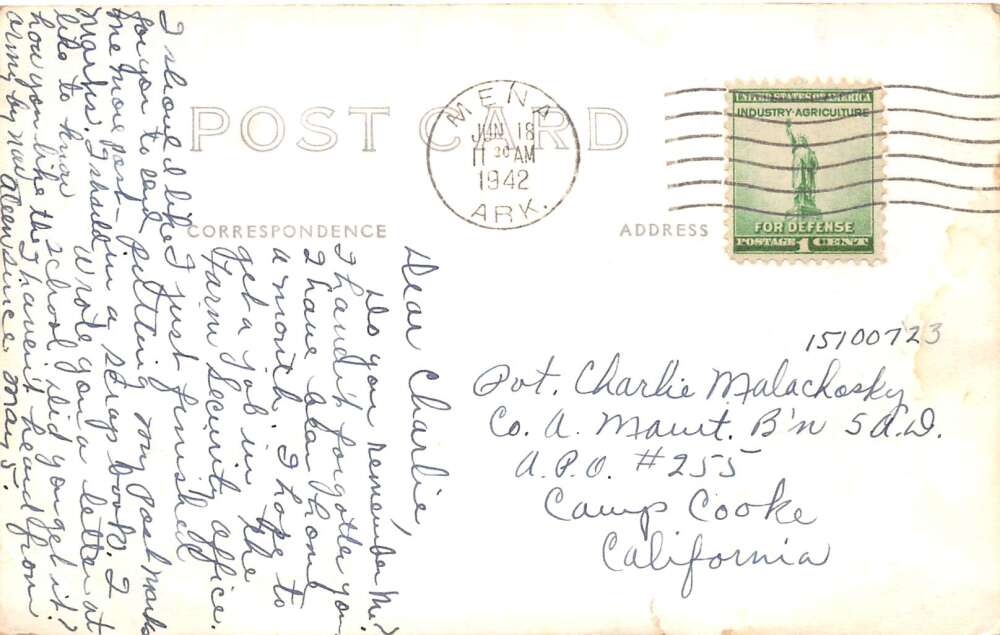 POST CARD
MENA
JUN 18
11 20 AM
1942
ARK.
UNITED STATES OF AMERICA
INDUSTRY · AGRICULTURE
FOR DEFENSE
POSTAGE 1 CENT
CORRESPONDENCE
ADDRESS
Dear Charlie,
Do you remember me?
I haven't forgotten you.
I have been home
a month. I hope to
get a job in the
Farm Security Office.
I just finished
putting my Post marks
in a scrap book. I
Wrote you a letter at
school, did you get it?
I haven't heard from
since May 5.
I should like
for you to send
me more post-
marks. I should
like to know
how you like the
army by now
15100723
Pvt. Charlie Malachosky
Co. A. Maint. B'n 5 A.D.
A.P.O. #255
Camp Cooke
California